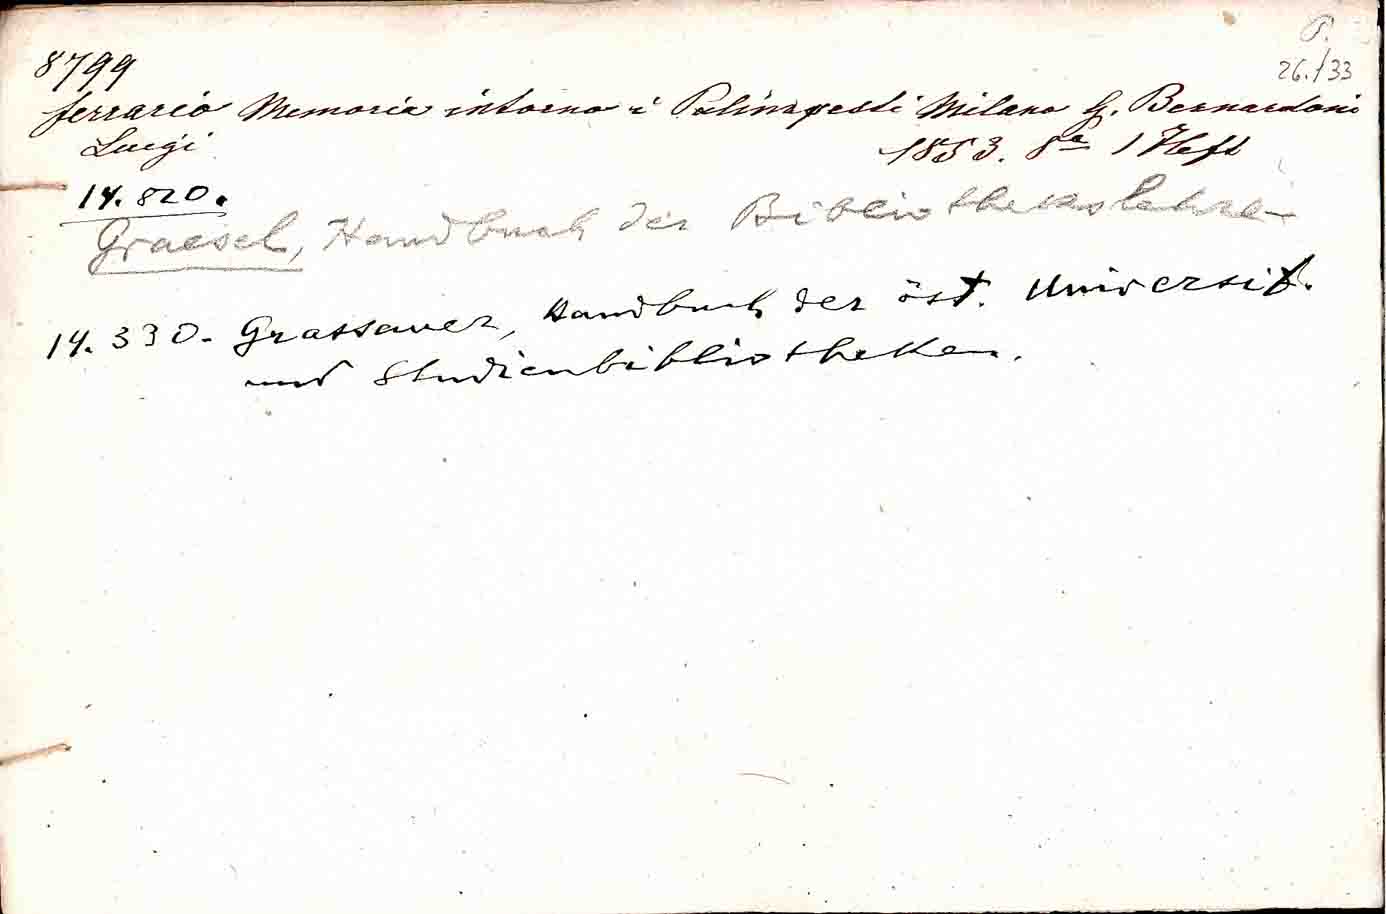 P.
26./33
8799
ferrario Memoria intorno i Palinspesti Milano G. Bernardoni
Luigi 1853. 8º 1 Heft
14.820.
Graesel, Handbuch der Bibliothekslehre
14.330. Grassauer, Handbuch der öst. Universit.
und Studienbibliotheken.